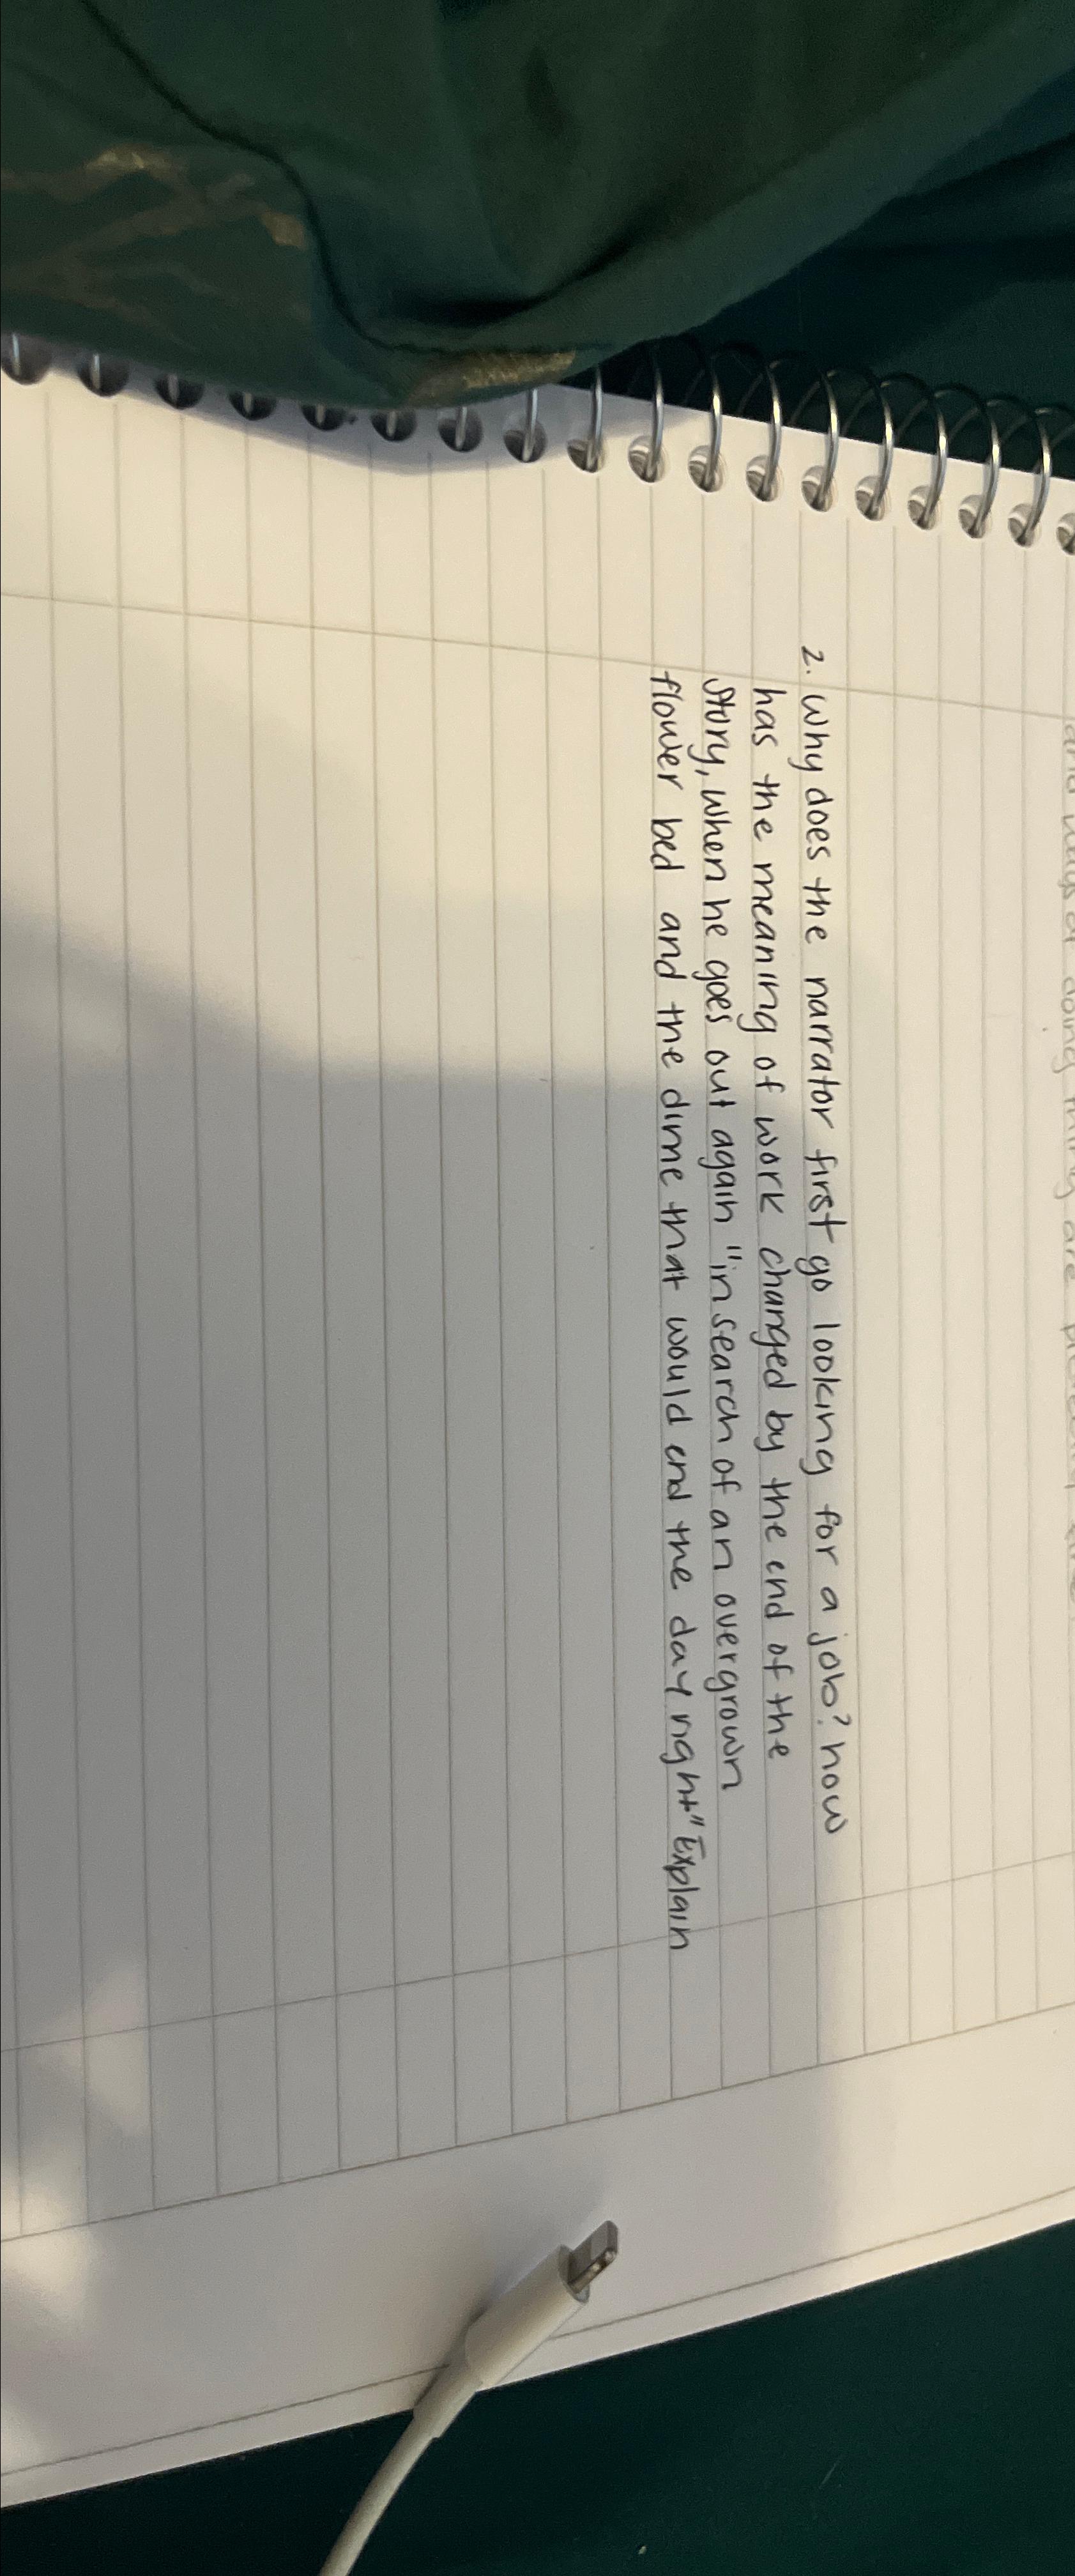 2. Why does the narrator first go looking for a job? how
has the meaning of work changed by the end of the
story, when he goes out again "in search of an overgrown
flower bed and the dime that would end the day right" Explain